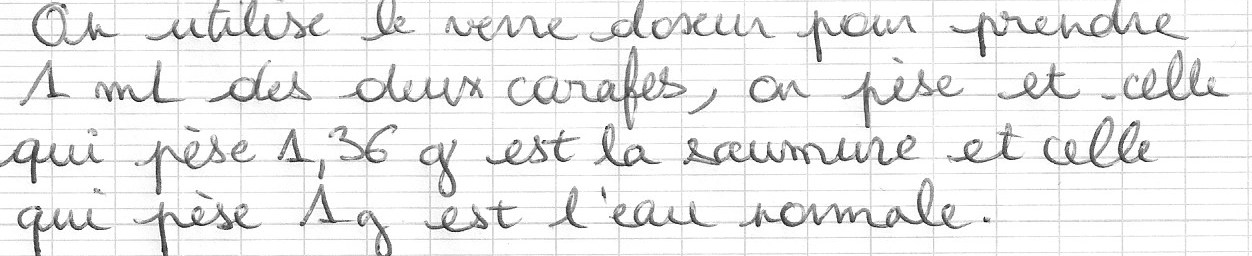 On utilise le verre doseur pour prendre
1 ml des deux carafes, on pèse et celle
qui pèse 1,36 g est la saumure et celle
qui pèse 1g est l'eau normale.